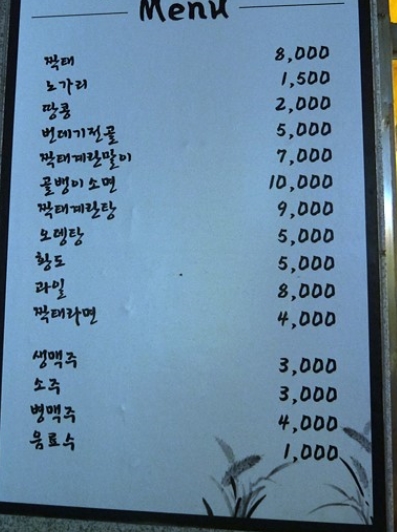 Menu
짝태 8,000
노가리 1,500
땅콩 2,000
번데기전골 5,000
짝태계란말이 7,000
골뱅이소면 10,000
짝태계란탕 9,000
오뎅탕 5,000
황도 5,000
과일 8,000
짝태라면 4,000
생맥주 3,000
소주 3,000
병맥주 4,000
음료수 1,000